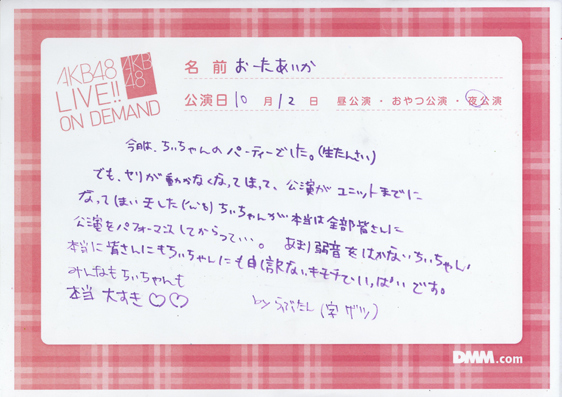 AKB48
LIVE!!
ON DEMAND
AKB
48
名前 おーたあいか
公演日 10月12日 昼公演・おやつ公演・夜公演
今日は、ちぃちゃんのパーティーでした。(生たんさい)
でも、セリが動かなくなってしまって、公演がユニットまでに
なってしまいました ちぃちゃんが本当は全部皆さんに
公演をパフォーマンスしてからって…。あまり弱音をはかないちぃちゃん
本当に皆さんにもちぃちゃんにも申し訳ないキモチでいっぱいです。
みんなもちぃちゃんも
本当 大すき♡♡
by らぶたん (字 ゲリ)
DMM.com